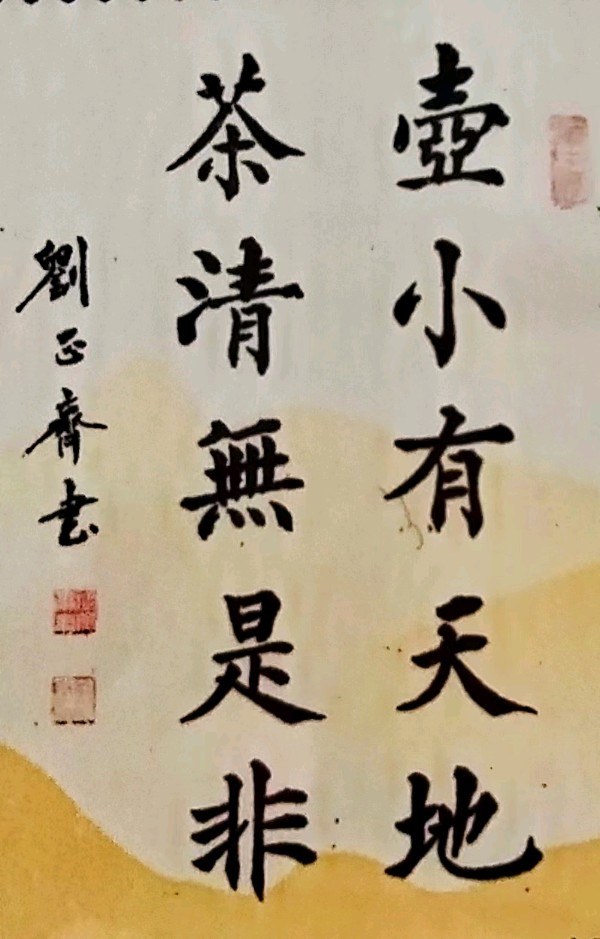 壺小有天地
茶清無是非
劉正齋书